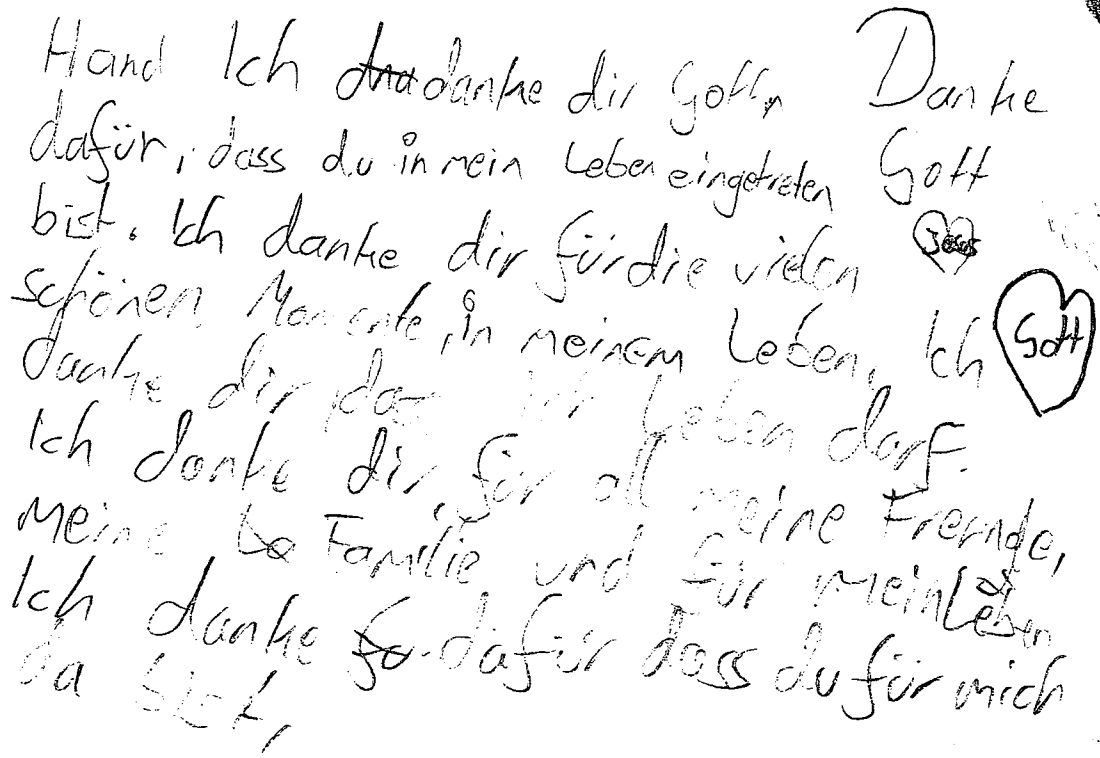 Hand Ich danke dir Gott,
dafür, dass du in mein Leben eingetreten
bist. Ich danke dir für die vielen
schönen Momente, in meinem Leben, Ich
danke dir das ich Leben darf.
Ich danke dir, für all meine Freunde,
meine Familie und für mein Leben
Ich danke dafür dass du für mich
da bist,
Danke
Gott
Jesus
Gott